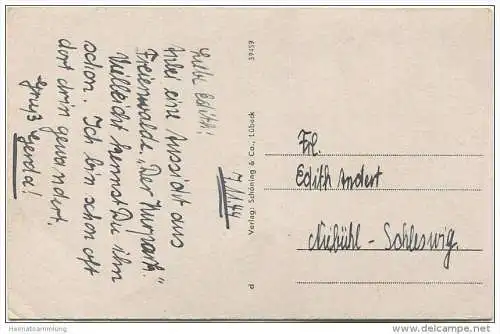 Liebe Edith!
Anbei eine Ansicht aus
Freienwalde „Der Kurpark."
Vielleicht kennst Du ihn
schon. Ich bin schon oft
dort drin gewandert.
Gruß Gerda!
7.11.44
Verlag: Schöning & Co., Lübeck
39459
d
Frl.
Edith Andert
Niebühl - Schleswig.
Heimatsammlung
www.delcampe.net